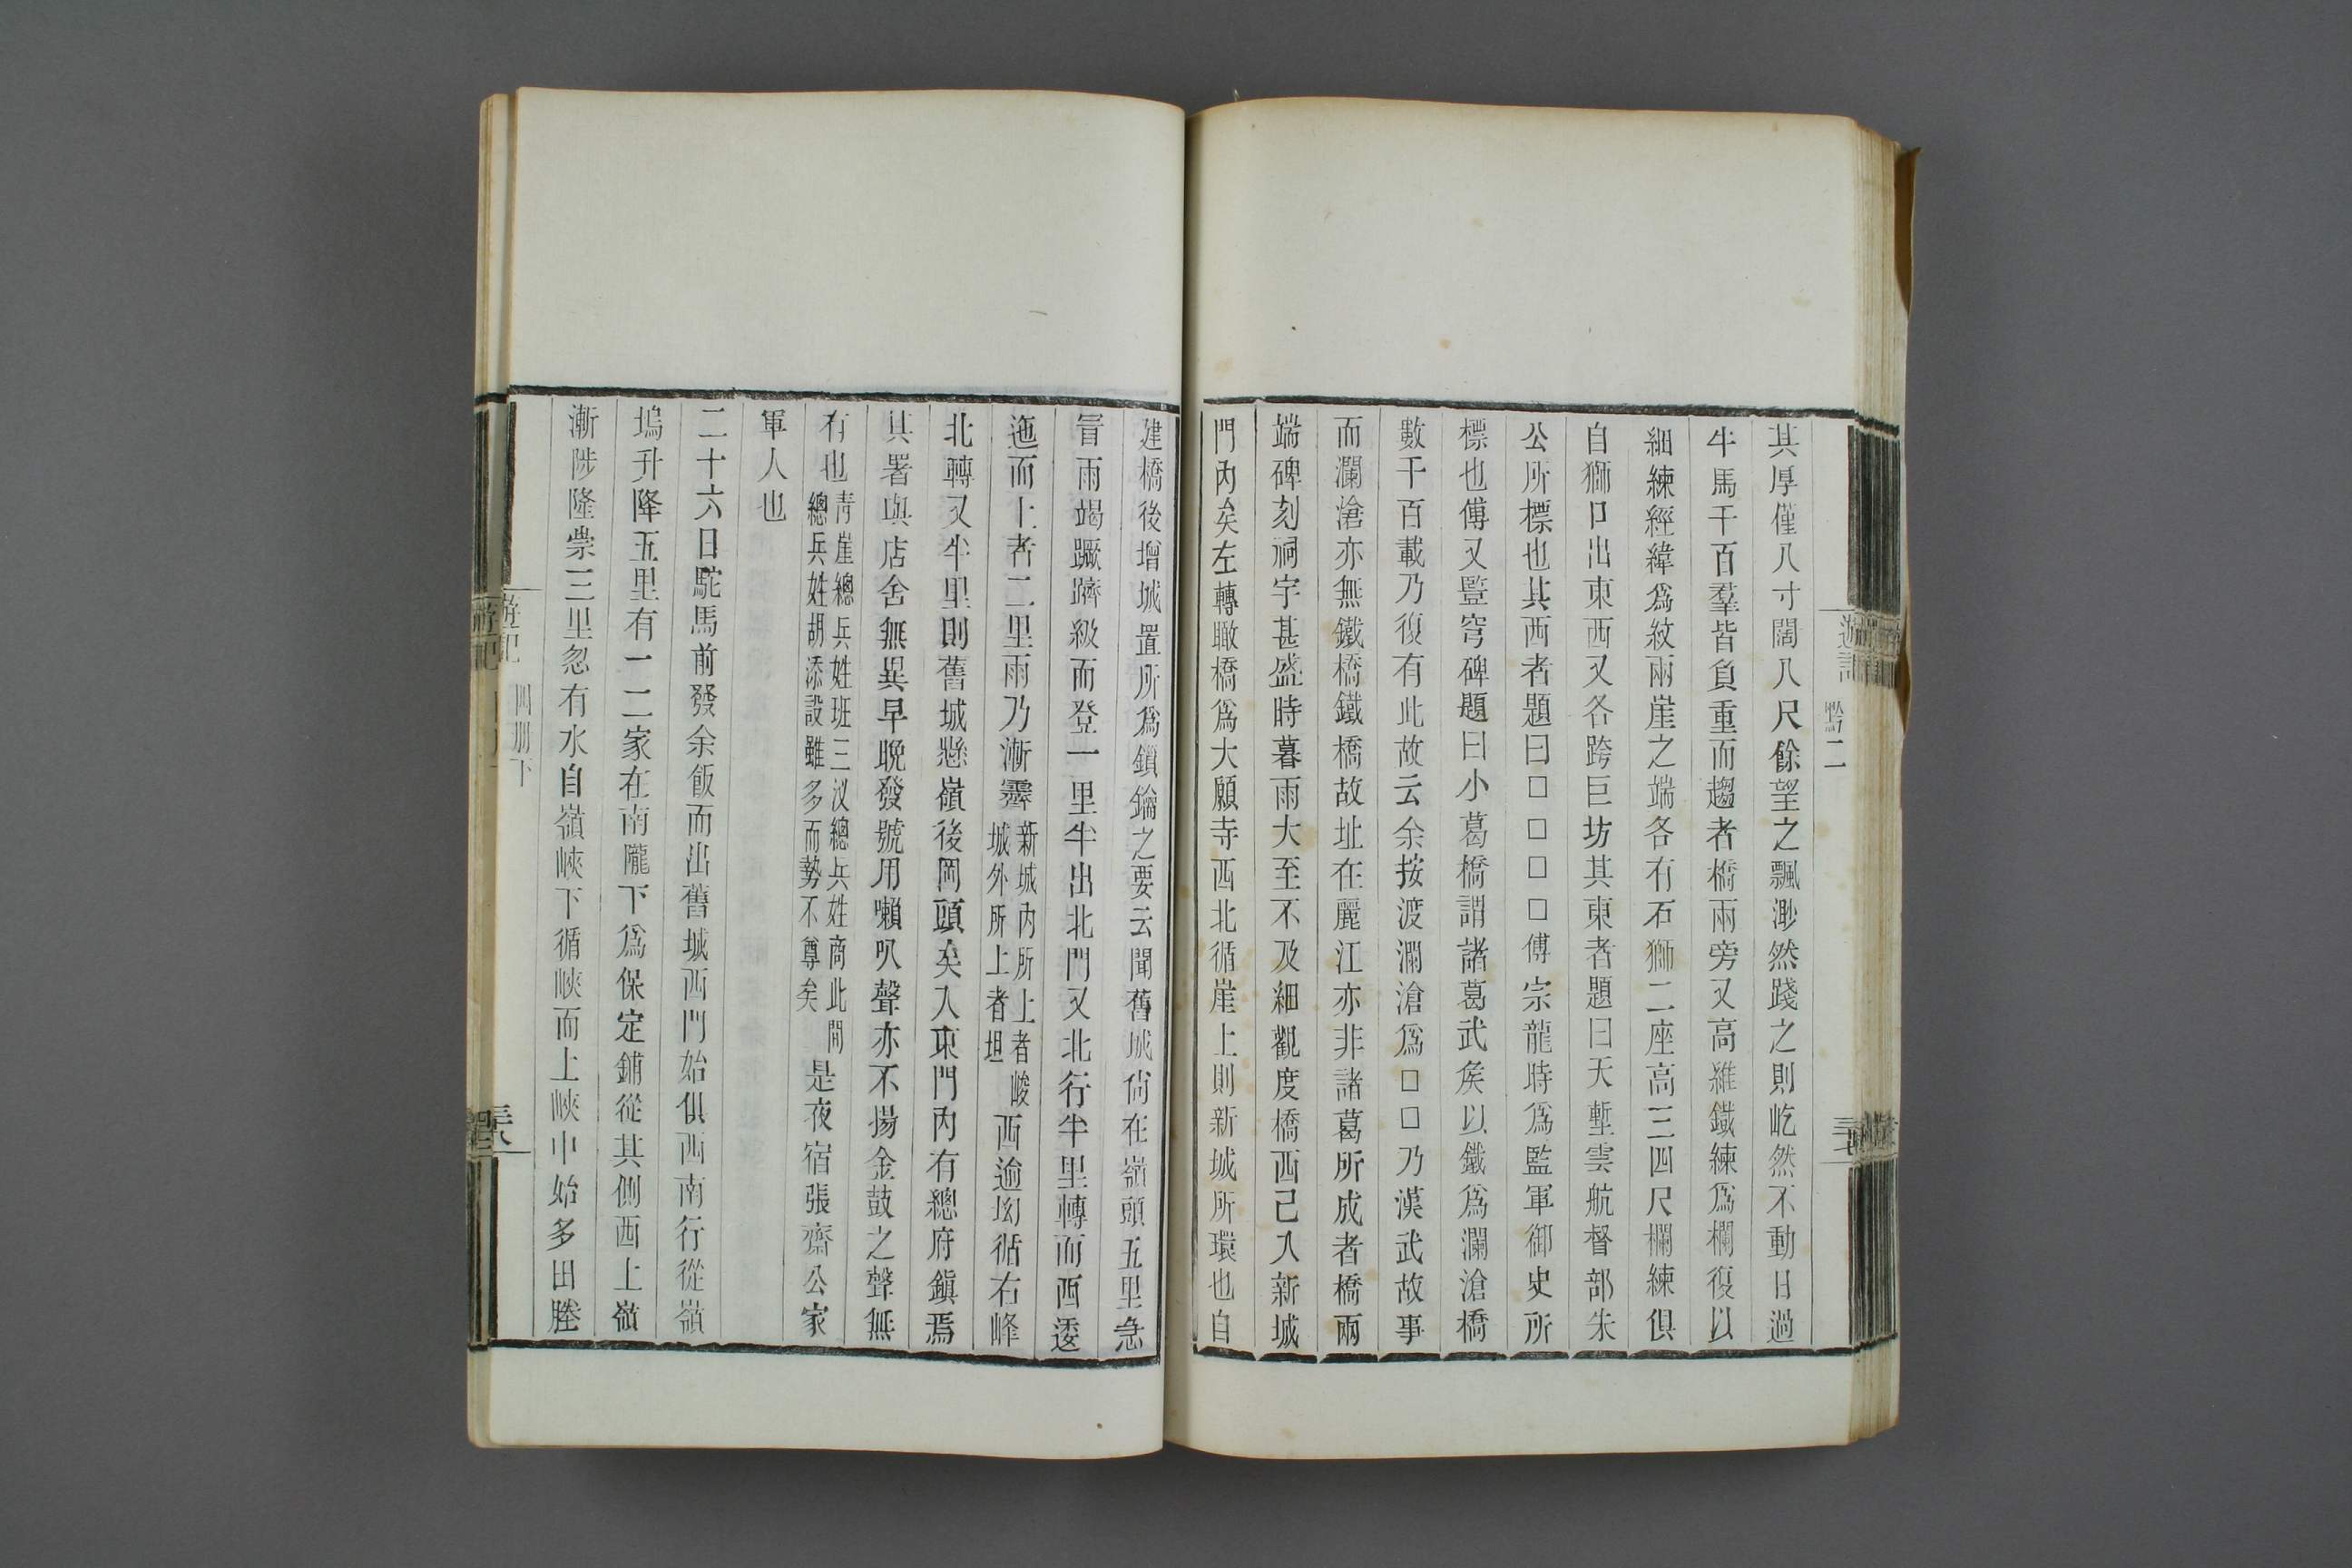 遊記 黔二
其厚僅八寸闊八尺餘望之飄渺然踐之則屹然不動日過
牛馬千百羣皆負重而趨者橋兩旁又高維鐵練爲欄復以
細練經緯爲紋兩崖之端各有石獅二座高三四尺欄練俱
自獅口出東西又各跨巨坊其東者題曰天塹雲航督部朱
公所標也其西者題曰□□□□傅宗龍時爲監軍御史所
標也傅又豎穹碑題曰小葛橋謂諸葛武矦以鐵爲瀾滄橋
數千百載乃復有此故云余按渡瀾滄爲□□乃漢武故事
而瀾滄亦無鐵橋鐵橋故址在麗江亦非諸葛所成者橋兩
端碑刻祠宇甚盛時暮雨大至不及細觀度橋西已入新城
門內矣左轉瞰橋爲大願寺西北循崖上則新城所環也自
建橋後增城置所爲鎖鑰之要云聞舊城尙在嶺頭五里急
冒雨竭蹶躋級而登一里半出北門又北行半里轉而西逶
迤而上者二里雨乃漸霽新城內所上者峻城外所上者坦西逾坳循右峰
北轉又半里則舊城懸嶺後岡頭矣入東門內有總府鎭焉
其署與店舍無異早晚發號用喇叭聲亦不揚金鼓之聲無
有也靑崖總兵姓班三汊總兵姓商此閒總兵姓胡添設雖多而勢不尊矣是夜宿張齋公家
軍人也
二十六日駝馬前發余飯而出舊城西門始俱西南行從嶺
塢升降五里有一二家在南隴下爲保定鋪從其側西上嶺
漸陟隆崇三里忽有水自嶺峽下循峽而上峽中始多田塍
遊記 四册下